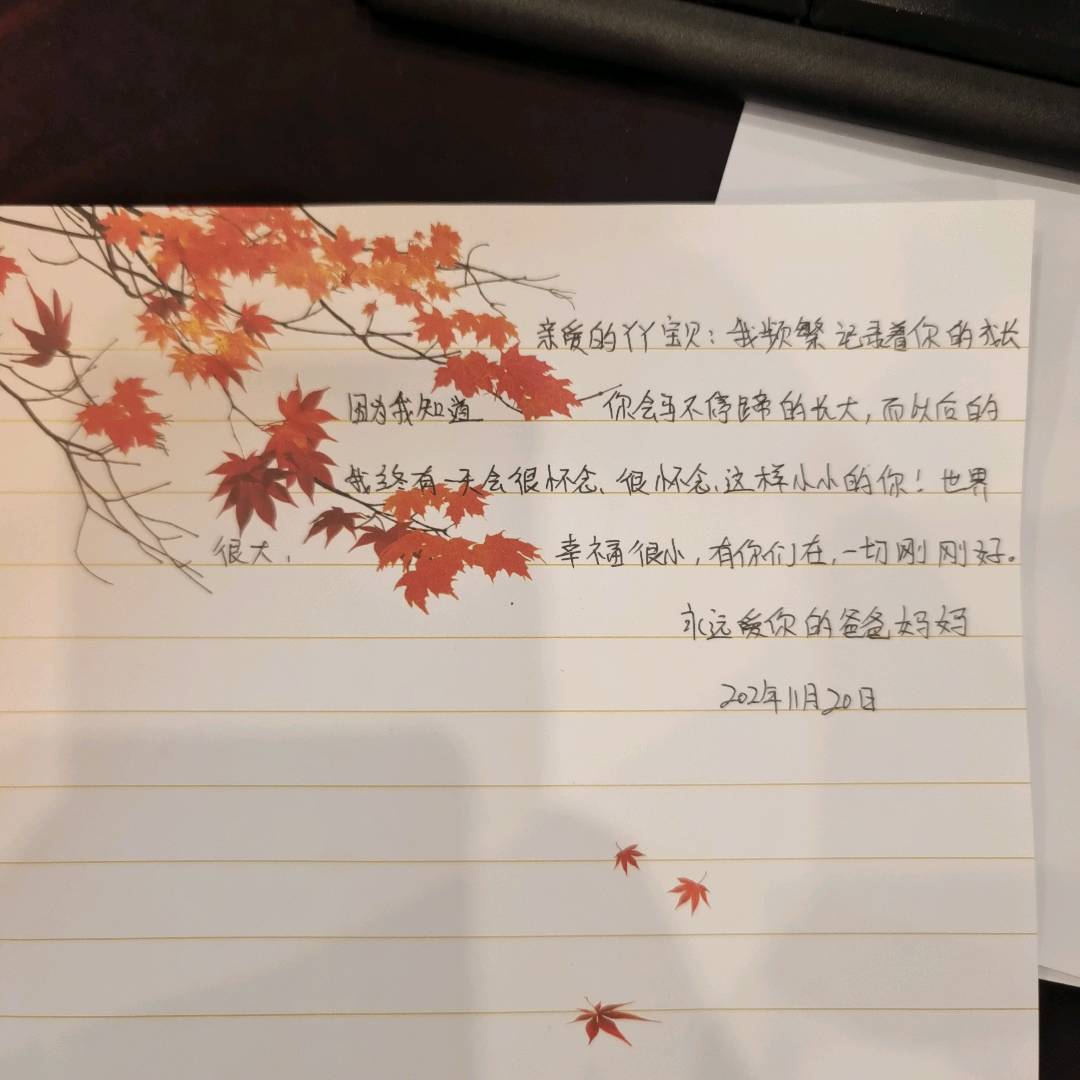 亲爱的丫丫宝贝:我频繁记录着你的成长
因为我知道 你会马不停蹄的长大,而以后的
我终有一天会很怀念、很怀念、这样小小的你!世界
很大, 幸福很小,有你们在,一切刚刚好。
永远爱你的爸爸妈妈
202年11月20日